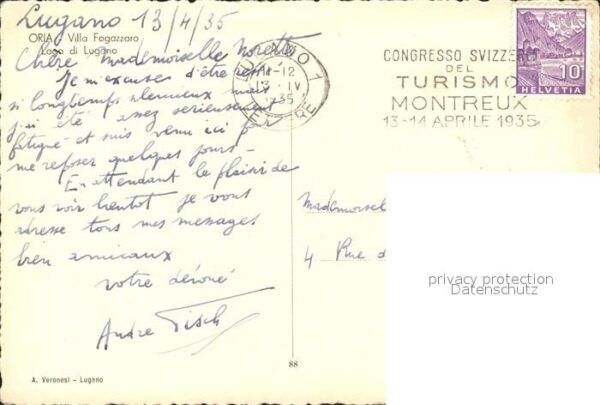 Lugano 13/4/35
ORIA Villa Fogazzaro
Lago di Lugano
Chère mademoiselle Moretti
Je m'excuse d'être resté
si longtemps silencieux mais
j'ai été assez sérieusement
fatigué et suis venu ici pour
me reposer quelques jours -
En attendant le plaisir de
vous voir bientôt je vous
adresse tous mes messages
bien amicaux
votre dévoué
André Tisch
A. Veronesi - Lugano
88
LUGANO 1
-12
13. IV
35
LETTERE
CONGRESSO SVIZZERO
DEL
TURISMO
MONTREUX
13-14 APRILE 1935
10
HELVETIA
Mademoiselle
4 Rue d
privacy protection
Datenschutz